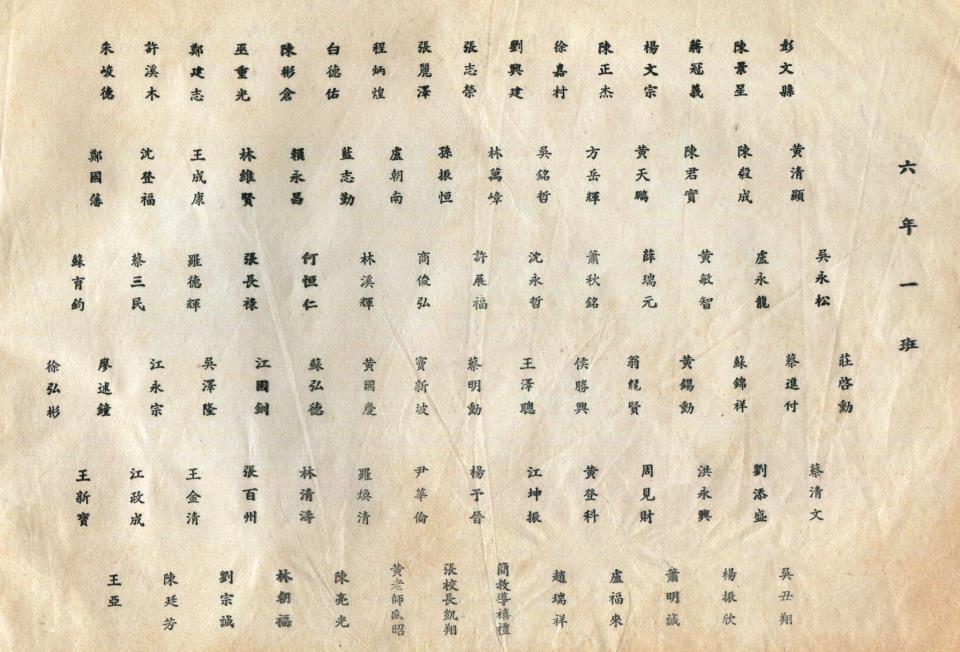 六年一班
彭文縣 陳景星 蔣冠義 楊文宗 陳正杰 徐嘉村 劉興建 張志榮 張麗澤 程炳煌 白德佑 陳彬倉 巫重光 鄭建志 許溪木 朱峻德
黃清顯 陳毅成 陳君實 黃天鵬 方岳輝 吳銘哲 林萬嶂 孫振恒 盧朝南 藍志勤 賴永昌 林維賢 王成康 沈登福 鄭國藩
吳永松 盧永龍 黃敏智 薛瑞元 蕭秋銘 沈永哲 許展福 商俊弘 林溪輝 何恒仁 張長祿 羅德輝 蔡三民 蘇育鈞
莊啓勳 蔡進付 蘇錦祥 黃錫勳 翁龍賢 侯勝興 王澤聰 蔡明勳 竇新坡 黃國慶 蘇弘德 江國釧 吳澤隆 江永宗 廖述鐘 徐弘彬
蔡清文 劉添盛 洪永興 周見財 黃登科 江坤振 楊予晉 尹華倫 羅煥清 林清濤 張百州 王金清 江政成 王新寶
吳丑翔 楊振欣 蕭明誠 盧福來 趙瑞祥 簡教導禧禮 張校長凱翔 黃老師威昭 陳亮光 林朝福 劉宗誠 陳廷芳 王亞